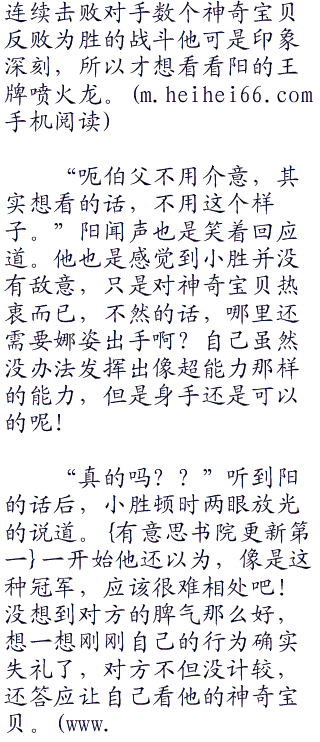 连续击败对手数个神奇宝贝
反败为胜的战斗他可是印象
深刻，所以才想看看阳的王
牌喷火龙。(m.heihei66.com
手机阅读)
“呃伯父不用介意，其
实想看的话，不用这个样
子。”阳闻声也是笑着回应
道。他也是感觉到小胜并没
有敌意，只是对神奇宝贝热
衷而已，不然的话，哪里还
需要娜姿出手啊？自己虽然
没办法发挥出像超能力那样
的能力，但是身手还是可以
的呢！
“真的吗？？”听到阳
的话后，小胜顿时两眼放光
的说道。{有意思书院更新第
一}一开始他还以为，像是这
种冠军，应该很难相处吧！
没想到对方的脾气那么好，
想一想刚刚自己的行为确实
失礼了，对方不但没计较，
还答应让自己看他的神奇宝
贝。(www.